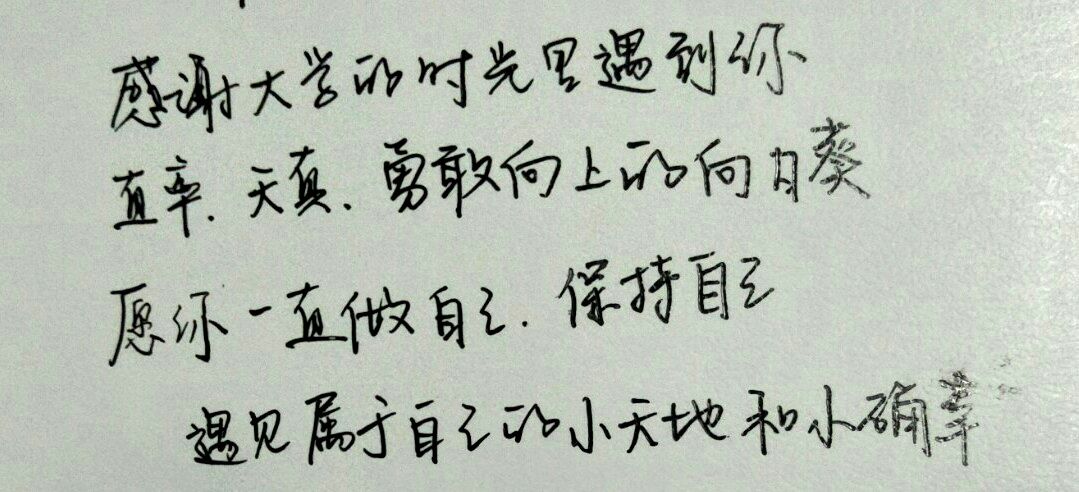 感谢大学的时光里遇到你
直率、天真、勇敢向上的向日葵
愿你一直做自己、保持自己
遇见属于自己的小天地和小确幸